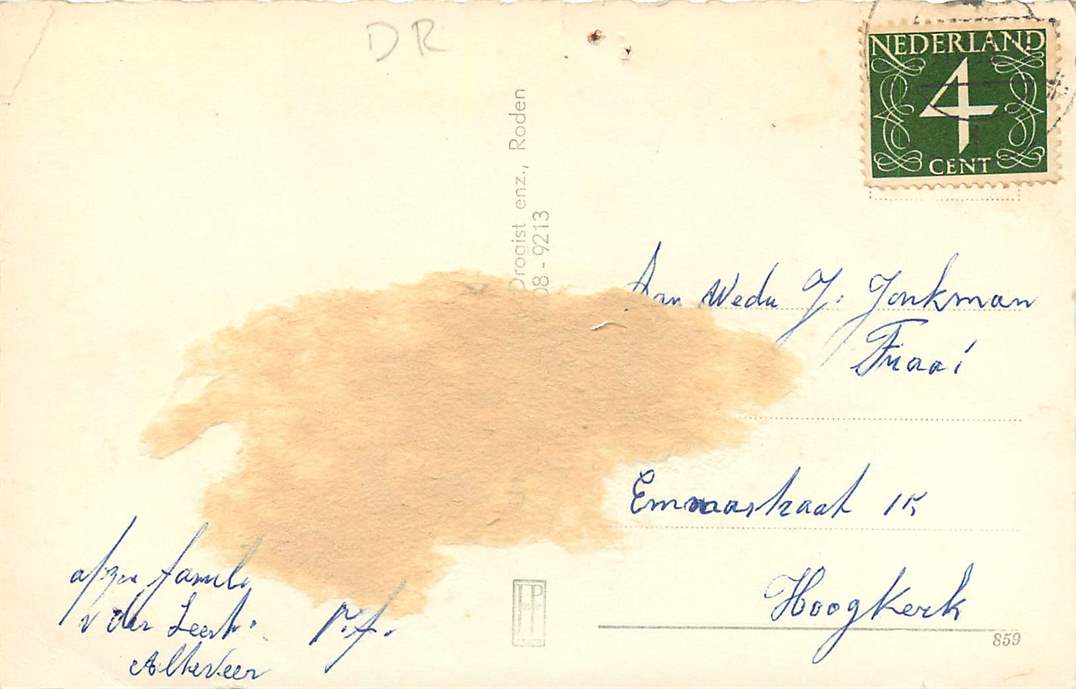 DR
NEDERLAND
4
CENT
Drogist enz., Roden
08 - 9213
Aan Wedu J. Jonkman
Emmastraat 15
Hoogkerk
859
afzen famili
v der
Alteveer
p.f.